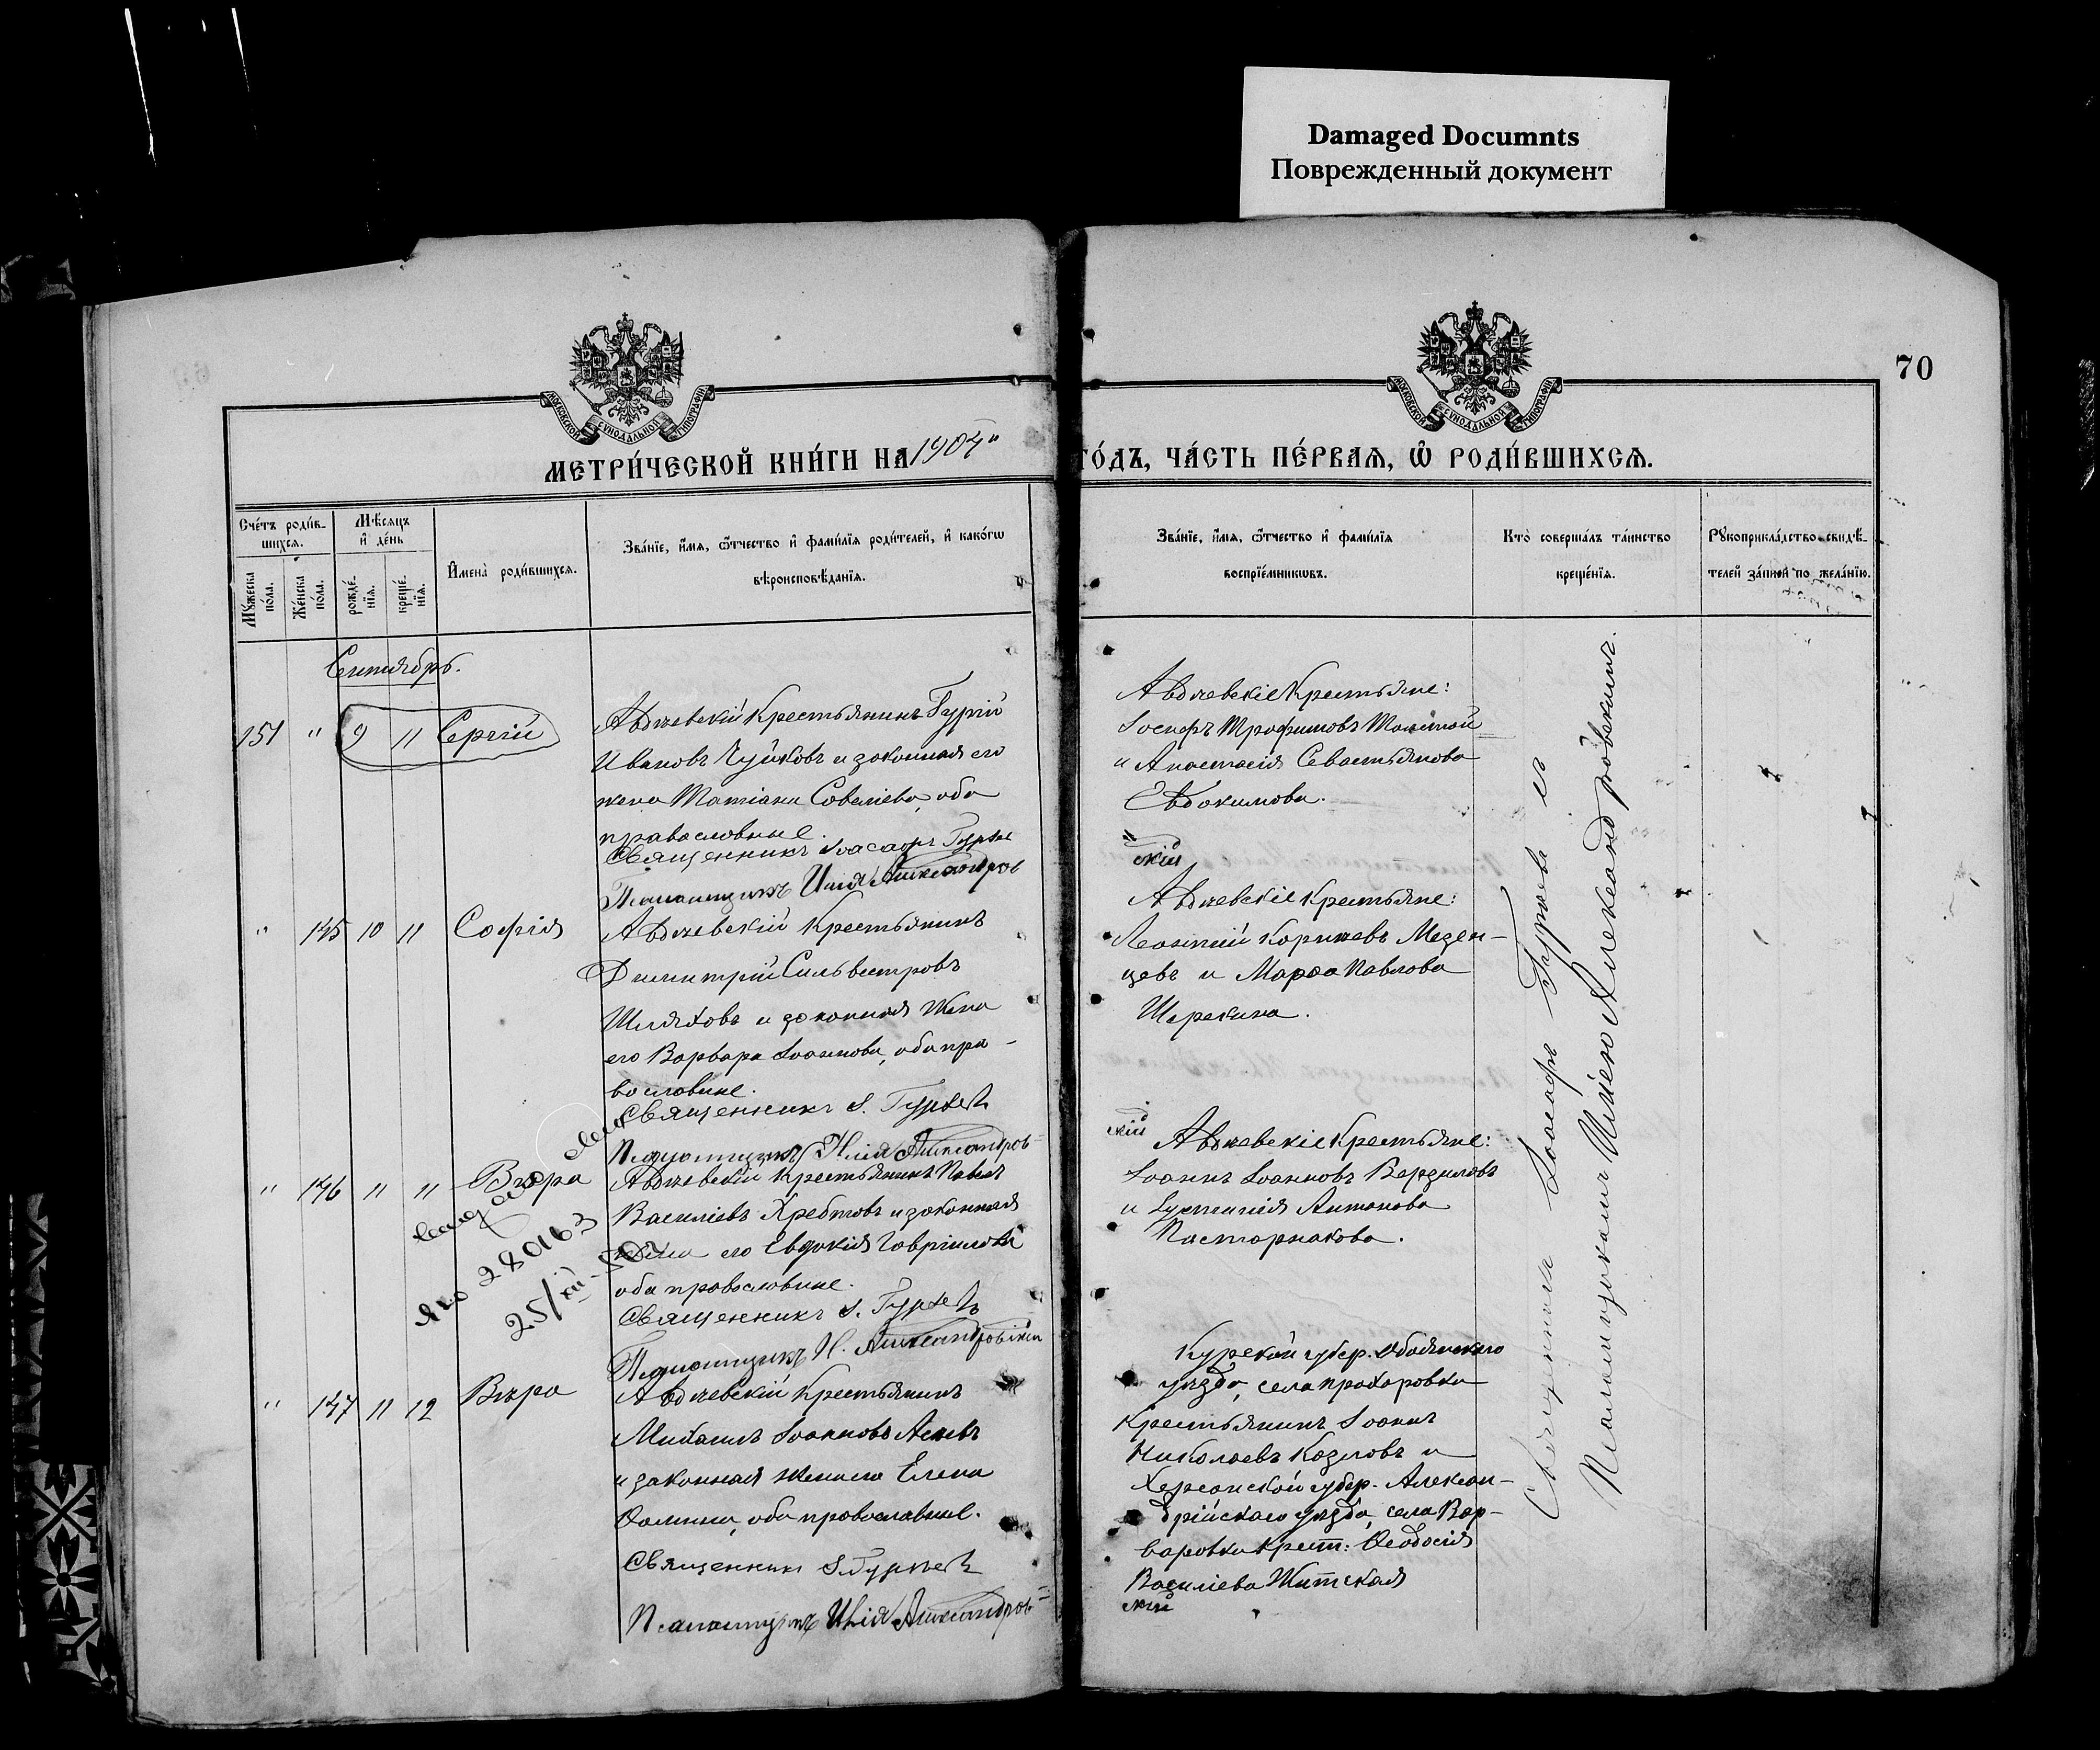 Damaged Documnts
Поврежденный документ
70
МОСКОВСКОЙ СѴНОДАЛЬНОЙ ТИПОГРАФІИ
МОСКОВСКОЙ СѴНОДАЛЬНОЙ ТИПОГРАФІИ
МЕТРИ́ЧЕСКОЙ КНИ́ГИ НА 1904 ГО́ДЪ, ЧА́СТЬ ПЕ́РВАѦ, Ѡ҆ РОДИ́ВШИХСѦ.
Сче́тъ роди́в-
шихсѧ.
Мꙋ́жеска по́ла.
Же́нска по́ла.
Мѣ́сѧцъ
и҆ де́нь
рожде́-
нїѧ.
креще́-
нїѧ.
И҆мена̀ роди́вшихсѧ.
Зва́нїе, и҆́мѧ, ѻ҆́тчество и҆ фами́лїѧ роди́телей, и҆ како́гѡ
вѣроисповѣ́данїѧ.
Зва́нїе, и҆́мѧ, ѻ҆́тчество и҆ фами́лїѧ
воспрїе́мникѡвъ.
Кто̀ соверша́лъ та́инство
креще́нїѧ.
Рꙋкоприкла́дство свидѣ́-
телей за́писи по жела́нїю.
Сентябрь.
151 " 9 11 Сергій
Авдѣевскій Крестьянинъ Гурій
Ивановъ Чуйковъ и законная его
жена Татіана Савеліева, оба
православные.
Священникъ Іоасафъ Гурьев
Псаломщикъ Илія Александров
Авдѣевскіе Крестьяне:
Іосифъ Трофимовъ Толстой
и Анастасія Севастьянова
Евдокимова.
скій
" 145 10 11 Софія
Авдѣевскій Крестьянинъ
Димитрій Сильвестровъ
Шляховъ и законная жена
его Варвара Іоаннова, оба пра-
вославные.
Священникъ І. Гурьевъ
Псаломщикъ Илія Александров-
Авдѣевскіе Крестьяне:
Леонтій Корнѣевъ Мезен-
цевъ и Марѳа Павлова
Шерекина.
скій
" 146 " 11 Вѣра
№ 280163
25/XII-
Авдѣевскій Крестьянинъ Павелъ
Василіевъ Хребтовъ и законная
жена его Евдокія Гавріилова
оба православные.
Священникъ І. Гурьевъ
Псаломщикъ И. Александровскій
Авдѣевскіе Крестьяне:
Іоаннъ Іоанновъ Верзиловъ
и Евгенія Антонова
Пастернакова.
" 147 11 12 Вѣра
Авдѣевскій Крестьянинъ
Михаилъ Іоанновъ Асѣевъ
и законная жена его Елена
Ѳомина, оба православные.
Священник І. Гурьевъ
Псаломщикъ Илія Александров-
Курской губер. Обоянскаго
уѣзда, села Прохоровки
Крестьянинъ Іоаннъ
Николаевъ Козловъ и
Херсонской губер. Алексан-
дрійскаго уѣзда, села Вар-
варовки крест: Ѳеодосія
Василіева Житская
скій
Священникъ Іоасафъ Гурьевъ съ
Псаломщикомъ Иліею Александровскимъ.